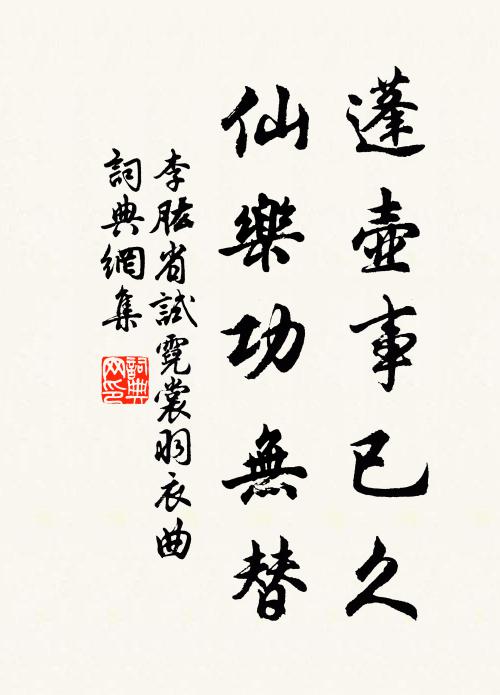 蓬壺事已久
仙樂功無替
李肱省試霓裳羽衣曲
詞典網集
詞典网印